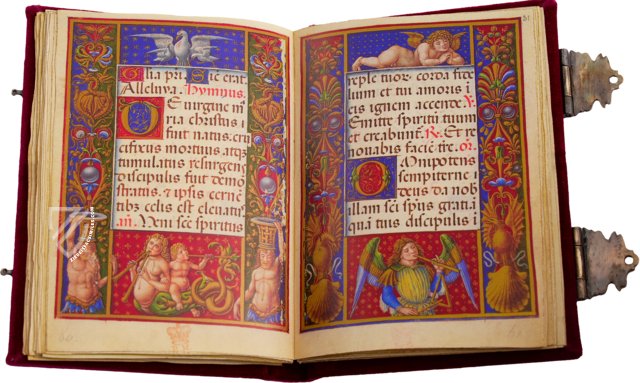 Glia pri. Sic erat
Alleluya. Hympus.
De uirgine m̄
ria christus i
fuit natus. cru
cifixus mortuus. atqz
tumulatus resurgens
discipulis fuit demō
stratus. & ipsis cernē
tibz celis est eleuatꝰ
añ. Veni scē spiritus
31
reple tuoꝝ corda fide
lium et tui amoris i
eis ignem accende. ℣.
Emitte spiritū tuum
et creabunt̄. ℟. Et re
nouabis faciē tr̄e. or̄.
Omnipotens
sempiterne
deus da nob
illam sc̄i spūs gratiā
quā tuis discipulis i